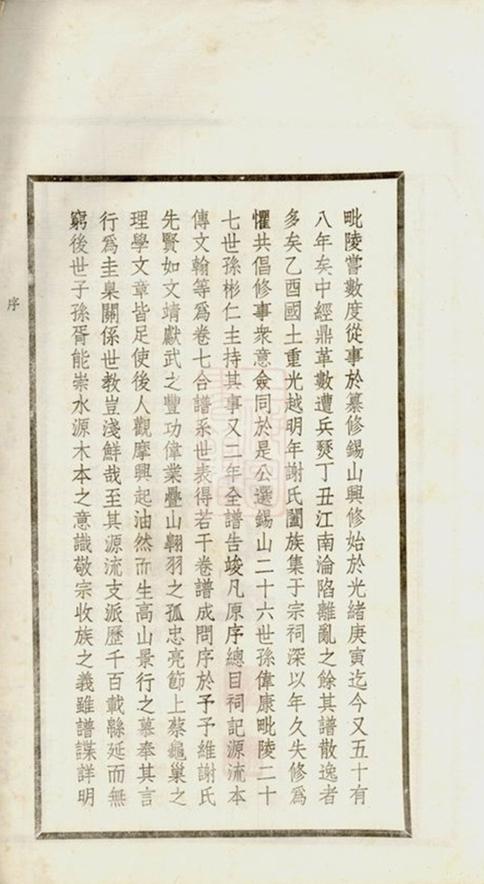 毗陵嘗數度從事於纂修錫山興修始於光緒庚寅迄今又五十有
八年矣中經鼎革數遭兵燹丁丑江南淪陷離亂之餘其譜散逸者
多矣乙酉國土重光越明年謝氏闔族集于宗祠深以年久失修爲
懼共倡修事衆意僉同於是公選錫山二十六世孫偉康毗陵二十
七世孫彬仁主持其事又二年全譜告竣凡原序總目祠記源流本
傳文翰等爲卷七合譜系世表得若干卷譜成問序於予予維謝氏
先賢如文靖獻武之豐功偉業疊山翺羽之孤忠亮節上蔡龜巢之
理學文章皆足使後人觀摩興起油然而生高山景行之慕奉其言
行爲圭臬關係世教豈淺鮮哉至其源流支派歷千百載緜延而無
窮後世子孫胥能崇水源木本之意識敬宗收族之義雖譜諜詳明
序